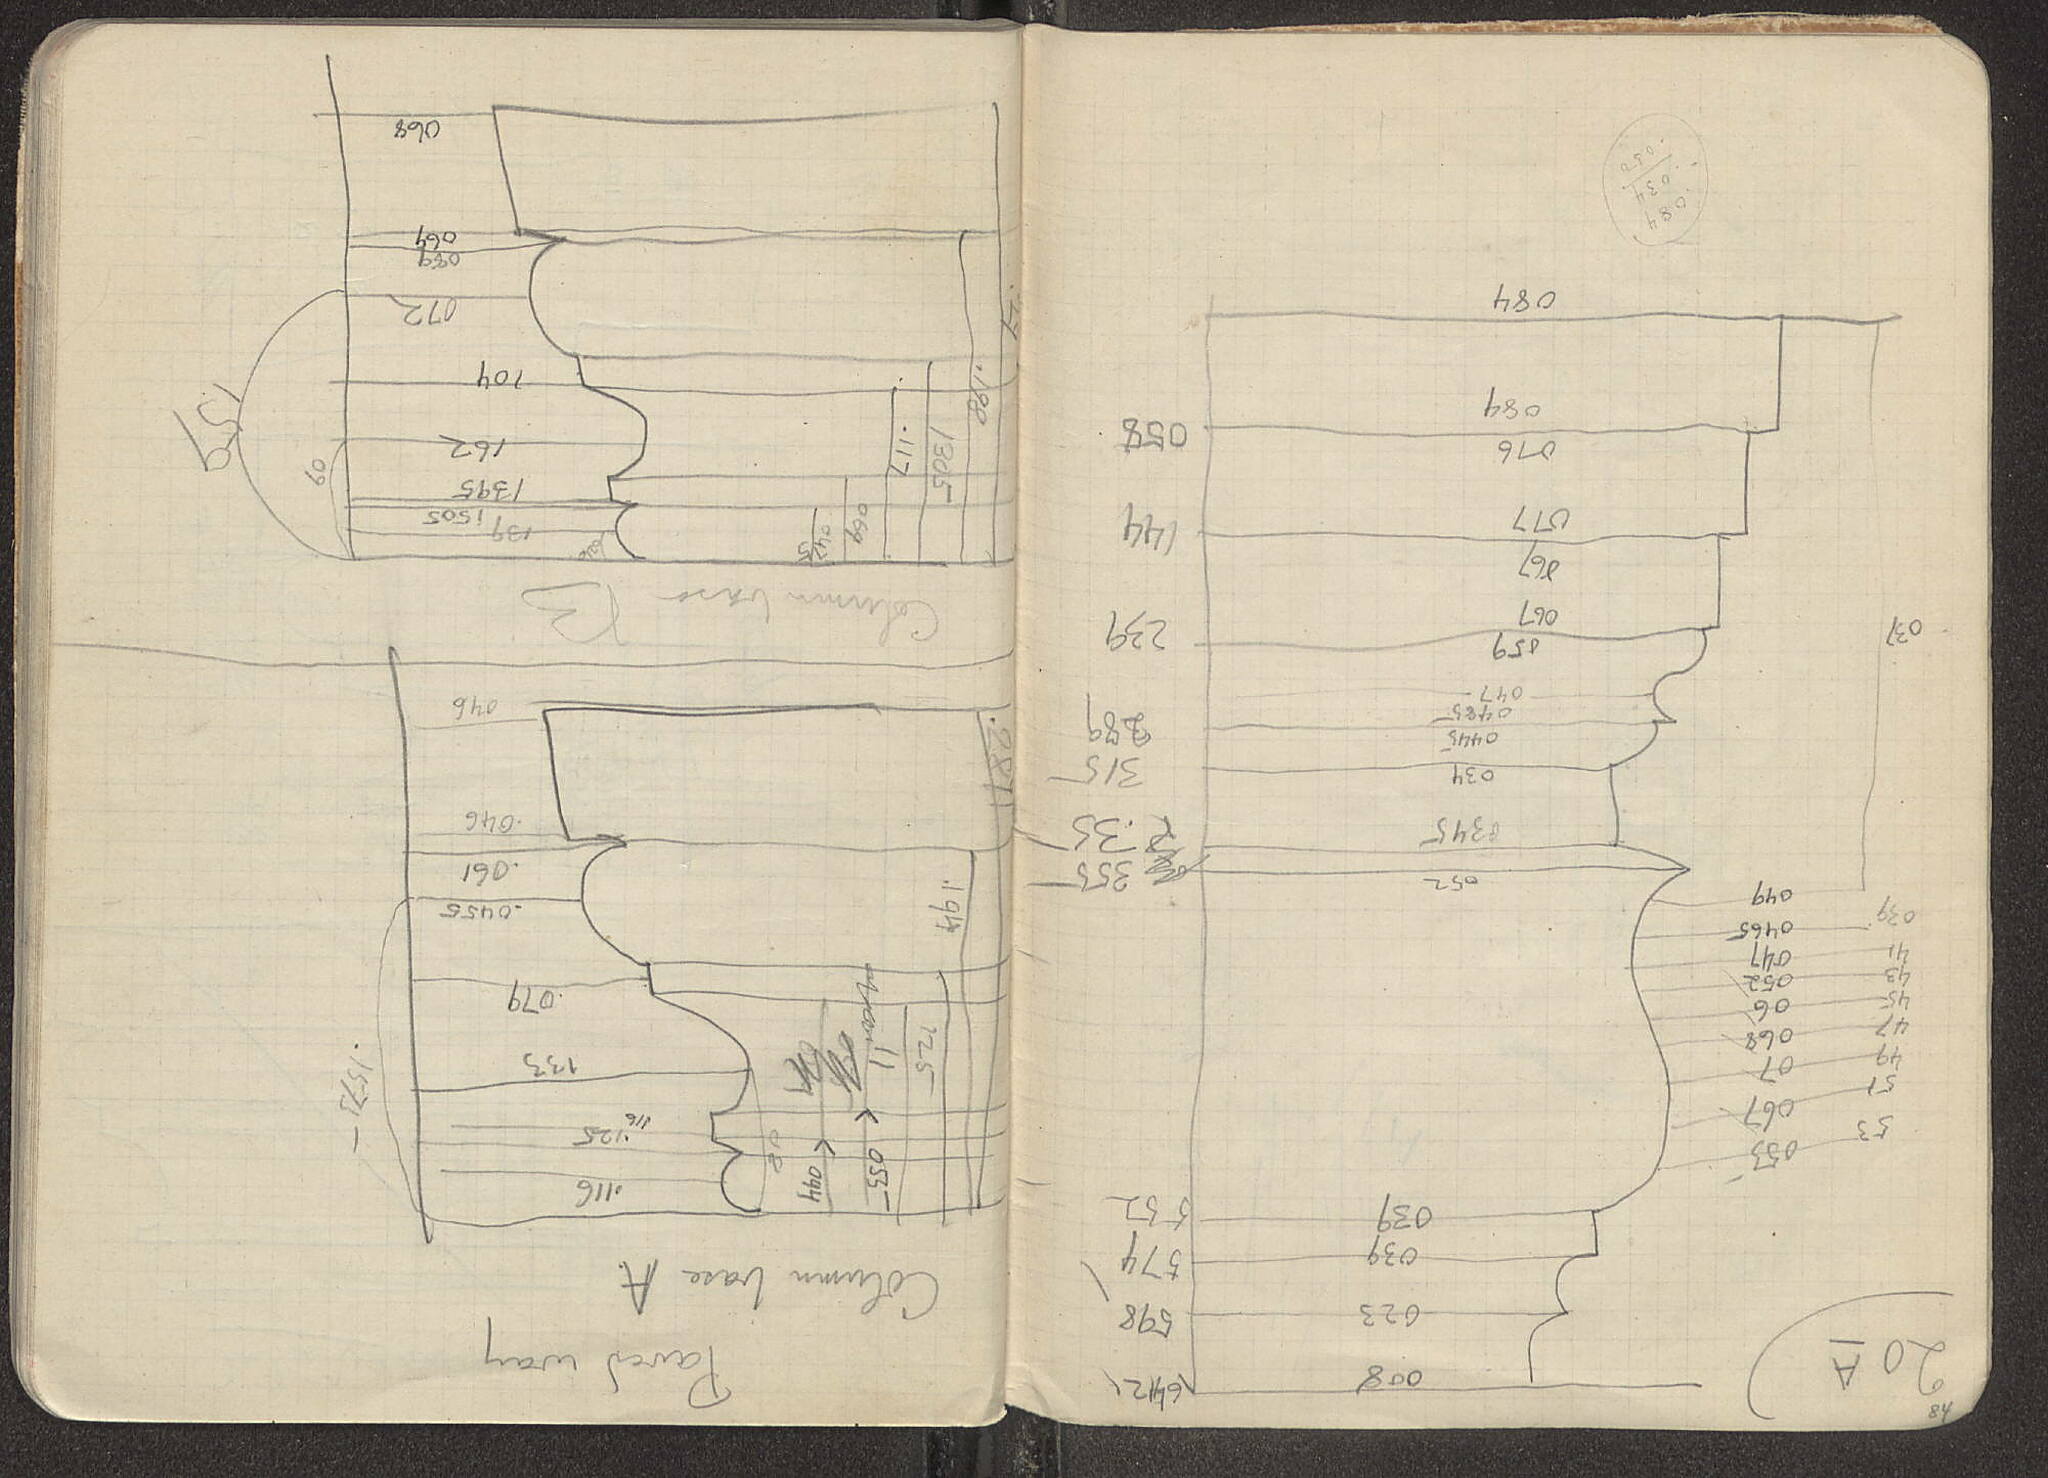 84
20 A
008 .642
023 598
039 574
039 552
53 053
51 067
49 07
47 068
45 06
43 052
41 047
039 0465
049
052 355
0345 R .35
034 315
0445
0485 289
047
059 239
037
067
067
077 144
076 058
084
084
.084
.034
.050
Paved way
Column base A
.116
044
053
08
.125
116
125
11
133
.1573
079
.0455
.194
.061
.046
.287
046
Column base B
139
1505
0425
1395
069
162
09
1305
.117
159
104
.198
072
089
064
.27
068